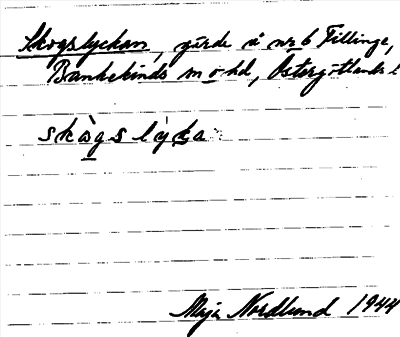 Skogslyckan, gärde å nr 6 Fillinge,
Bankekinds sn o hd, Östergötlands l
skògslỳka
Maja Nordlund 1944